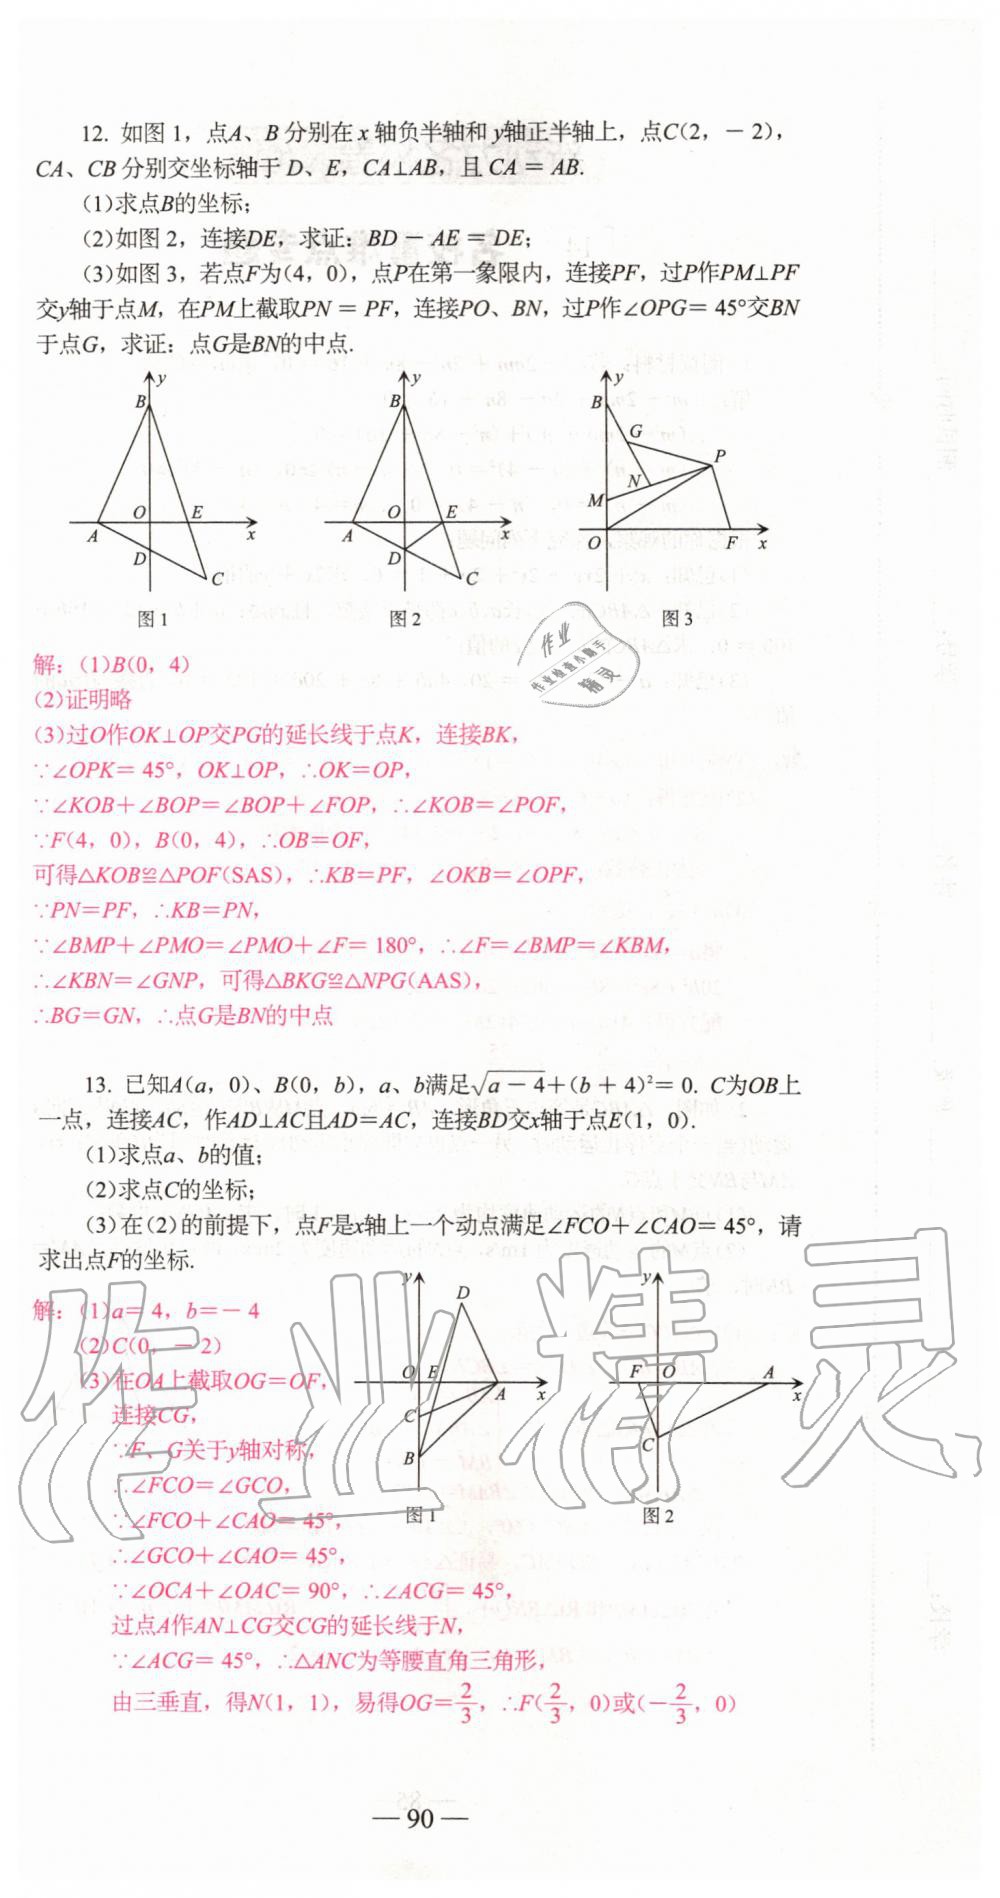 12. 如图1，点A、B分别在x轴负半轴和y轴正半轴上，点C(2，－2)，
CA、CB分别交坐标轴于D、E，CA⊥AB，且CA＝AB.
(1)求点B的坐标；
(2)如图2，连接DE，求证：BD－AE＝DE；
(3)如图3，若点F为(4，0)，点P在第一象限内，连接PF，过P作PM⊥PF
交y轴于点M，在PM上截取PN＝PF，连接PO、BN，过P作∠OPG＝45°交BN
于点G，求证：点G是BN的中点.
y
B
O
E
A
x
D
C
图1
y
B
O
E
A
x
D
C
图2
y
B
G
P
N
M
O
F
x
图3
作业
作业检查小助手
精灵
解：(1)B(0，4)
(2)证明略
(3)过O作OK⊥OP交PG的延长线于点K，连接BK，
∵∠OPK＝45°，OK⊥OP，∴OK＝OP，
∵∠KOB＋∠BOP＝∠BOP＋∠FOP，∴∠KOB＝∠POF，
∵F(4，0)，B(0，4)，∴OB＝OF，
可得△KOB≌△POF(SAS)，∴KB＝PF，∠OKB＝∠OPF，
∵PN＝PF，∴KB＝PN，
∵∠BMP＋∠PMO＝∠PMO＋∠F＝180°，∴∠F＝∠BMP＝∠KBM，
∴∠KBN＝∠GNP，可得△BKG≌△NPG(AAS)，
∴BG＝GN，∴点G是BN的中点
13. 已知A(a，0)、B(0，b)，a、b满足√(a－4)＋(b＋4)²＝0. C为OB上
一点，连接AC，作AD⊥AC且AD＝AC，连接BD交x轴于点E(1，0).
(1)求点a、b的值；
(2)求点C的坐标；
(3)在(2)的前提下，点F是x轴上一个动点满足∠FCO＋∠CAO＝45°，请
求出点F的坐标.
解：(1)a＝4，b＝－4
(2)C(0，－2)
(3)在OA上截取OG＝OF，
连接CG，
∵F、G关于y轴对称，
∴∠FCO＝∠GCO，
∵∠FCO＋∠CAO＝45°，
∴∠GCO＋∠CAO＝45°，
∵∠OCA＋∠OAC＝90°，∴∠ACG＝45°，
过点A作AN⊥CG交CG的延长线于N，
∵∠ACG＝45°，∴△ANC为等腰直角三角形，
由三垂直，得N(1，1)，易得OG＝2/3，∴F(2/3，0)或(－2/3，0)
y
D
O
E
A
x
C
B
图1
y
F
O
A
x
C
图2
作业精灵
— 90 —